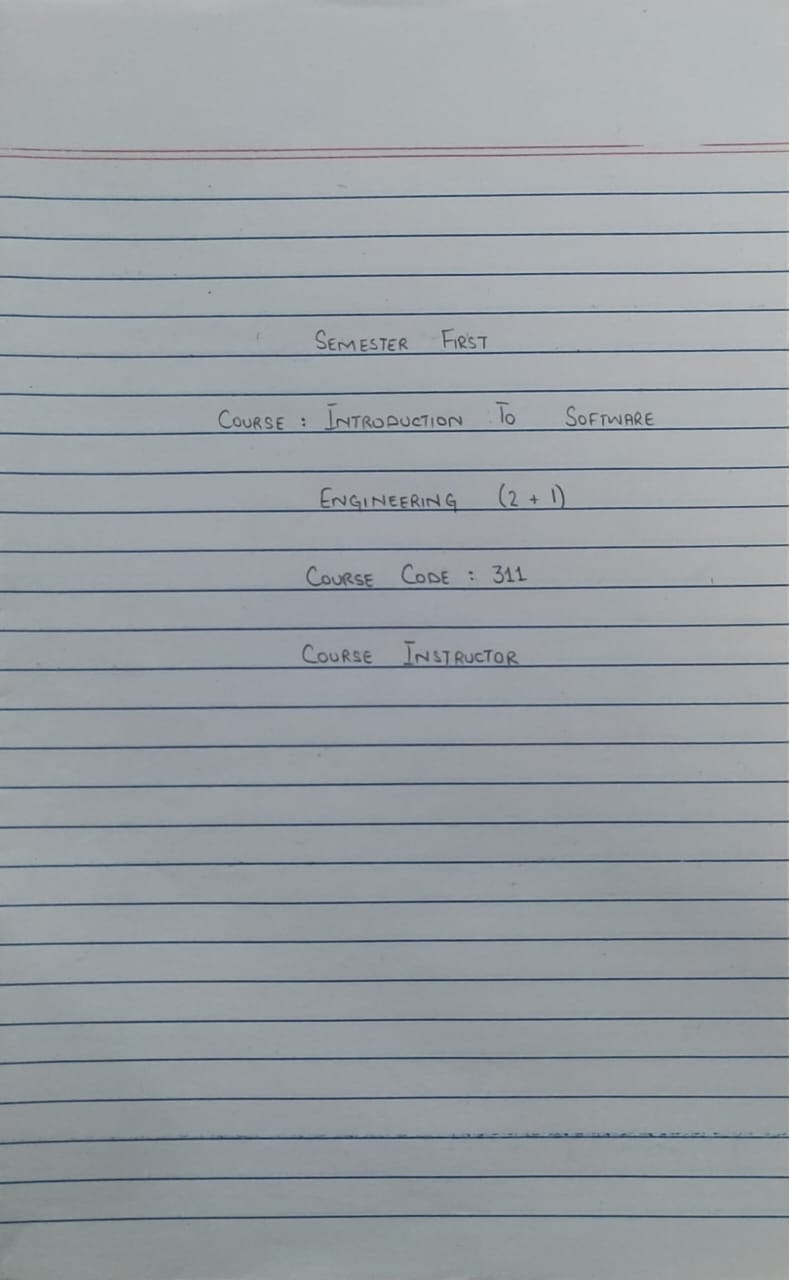 SEMESTER FIRST
COURSE : INTRODUCTION TO SOFTWARE
ENGINEERING (2 + 1)
COURSE CODE : 311
COURSE INSTRUCTOR